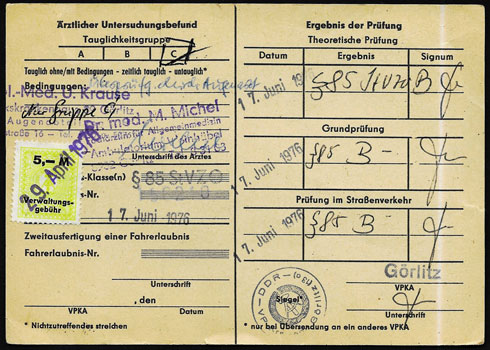 Ärztlicher Untersuchungsbefund
Tauglichkeitsgruppe
A B C
Tauglich ohne/mit Bedingungen - zeitlich tauglich - untauglich*
Bedingungen:
Med. U. Krause
Görlitz
Augenarzt
Gruppe
Dr. med. M. Michel
Fachärztin für Allgemeinmedizin
Unterschrift des Arztes
5,- M
Verwaltungs-
gebühr
29. April 1976
-Klasse(n) § 85 StVZO
-Nr.
17. Juni 1976
Zweitausfertigung einer Fahrerlaubnis
Fahrerlaubnis-Nr.
Unterschrift
, den
VPKA Datum
* Nichtzutreffendes streichen
Ergebnis der Prüfung
Theoretische Prüfung
Datum Ergebnis Signum
17. Juni 1976 § 85 StVZO B
Grundprüfung
17. Juni 1976 § 85 B -
Prüfung im Straßenverkehr
17. Juni 1976 § 85 B -
Görlitz
VPKA
Siegel*
Unterschrift
* nur bei Übersendung an ein anderes VPKA